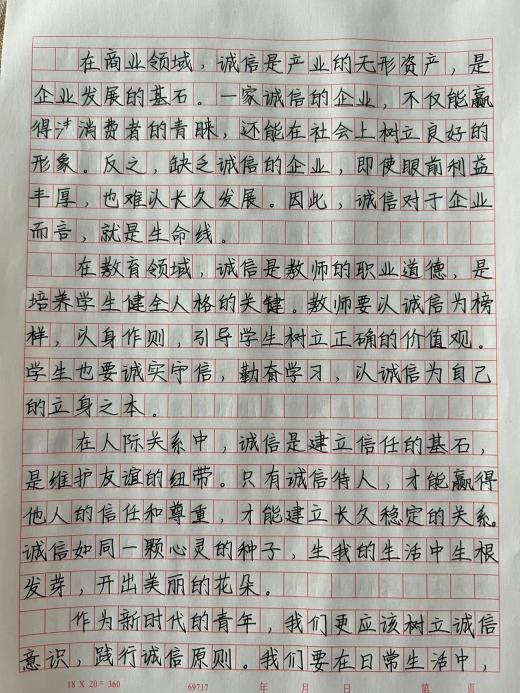 在商业领域，诚信是产业的无形资产，是
企业发展的基石。一家诚信的企业，不仅能赢
得消费者的青睐，还能在社会上树立良好的
形象。反之，缺乏诚信的企业，即使眼前利益
丰厚，也难以长久发展。因此，诚信对于企业
而言，就是生命线。
在教育领域，诚信是教师的职业道德，是
培养学生健全人格的关键。教师要以诚信为榜
样，以身作则，引导学生树立正确的价值观。
学生也要诚实守信，勤奋学习，以诚信为自己
的立身之本。
在人际关系中，诚信是建立信任的基石，
是维护友谊的纽带。只有诚信待人，才能赢得
他人的信任和尊重，才能建立长久稳定的关系。
诚信如同一颗心灵的种子，生我的生活中生根
发芽，开出美丽的花朵。
作为新时代的青年，我们更应该树立诚信
意识，践行诚信原则。我们要在日常生活中，
18 X 20 = 360 69717 年 月 日 第 页